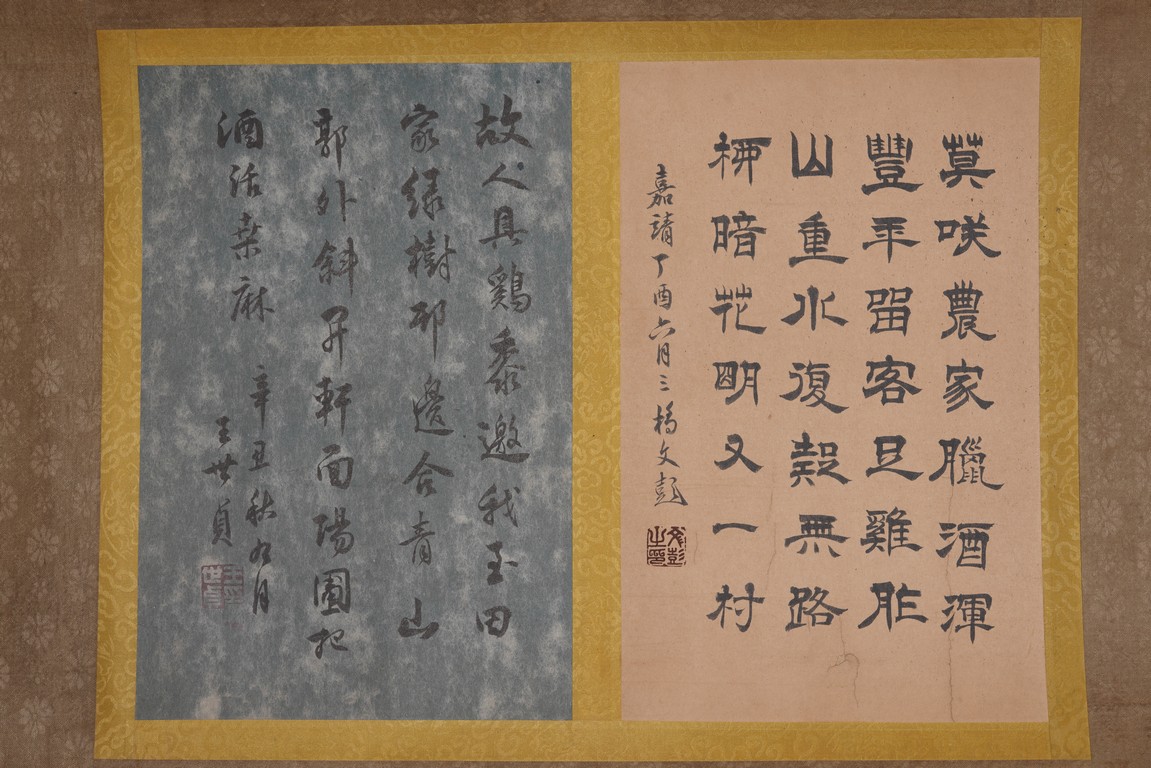 莫咲農家臘酒渾
豐年留客足雞肫
山重水復疑無路
柳暗花明又一村
嘉靖丁酉六月三橋文彭
文彭之印
故人具鷄黍邀我至田
家綠樹邨邊合青山
郭外斜開軒面陽圃把
酒話桑麻
辛丑秋九月
王世貞
王世貞